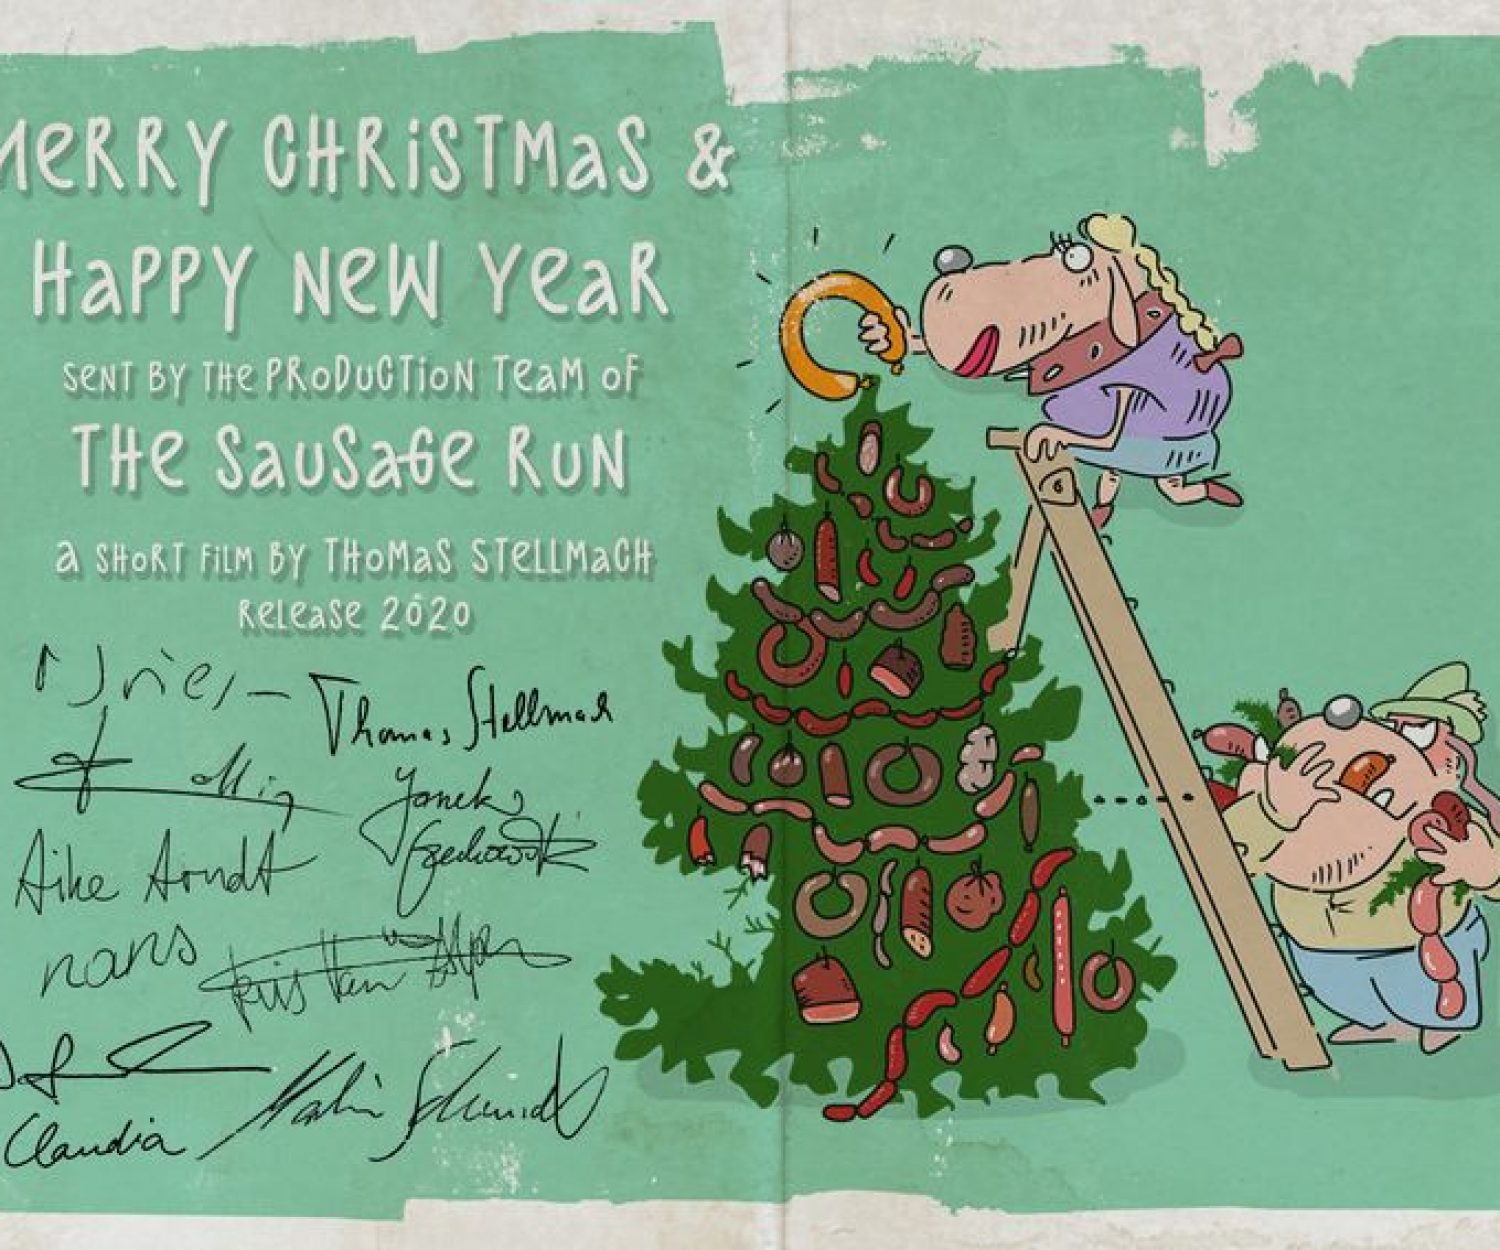 MERRY CHRISTMAS &
HAPPY NEW YEAR
SENT BY THE PRODUCTION TEAM OF
THE SAUSAGE RUN
A SHORT FILM BY THOMAS STELLMACH
RELEASE 2020
Thomas Stellmach
Janek
Aike Arndt
Claudia